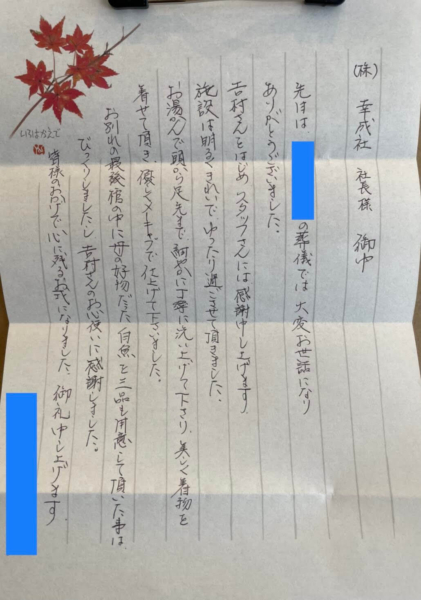 (株) 幸成社 社長様 御中
先日は、の葬儀では大変お世話になり
ありがとうございました。
吉村さんをはじめスタッフさんには感謝申し上げます。
施設は明るくきれいでゆったり過ごさせて頂きました。
お湯かんで頭から足先まで細やかに丁寧に洗い上げて下さり、美しく着物を
着せて頂き、優しくメーキャプで仕上げて下さいました。
お別れの最後棺の中に母の好物だった白魚を三品も用意して頂いた事は
びっくりしましたし吉村さんのお心使いに感謝しました。
皆様のおかげで心に残るお式になりました。御礼申し上げます
いろはかえで